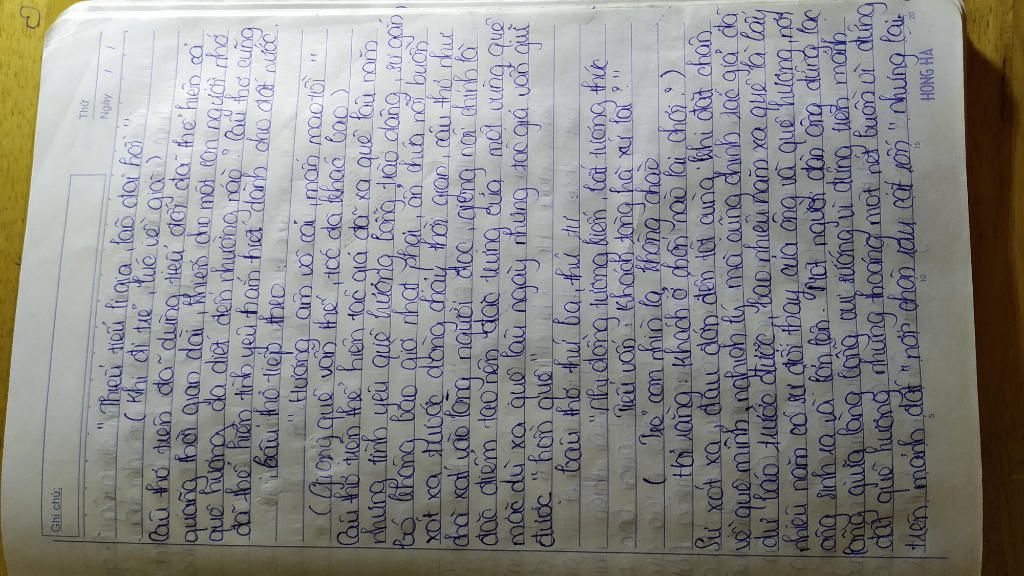 Thứ
Ngày / /
Ghi chú:
"Thiếu tiểu li gia, lão đại hồi"
(Khi đi trẻ, lúc về già)
Câu thơ trên đã dùng tiểu đối đã thể hiện cả
quãng thời gian dài, khiến cho mỗi con người nhớ
quê hương da diết đến nhường nào, câu thơ cũng
đã thể hiện tình yêu thầm mà dành cho đất nước.
Câu thơ tiếp theo.
"Hương âm vô cải mấn mao tồi"
(Giọng quê vẫn thế, tóc đà khác bao)
Câu thơ trên thể hiện tác giả đã xa quê lâu năm
nhưng tình yêu quê hương lòng thảo dâng,
bó không bao giờ nhạt phai, ẩn chứa nỗi buồn
xót xa trước dòng chảy thời gian, câu thơ như
đã xoáy vào lòng người đọc, giọng nói chính là
đặc điểm tạo nên đặc trưng của một vùng quê
mặc dù xa quê lâu ngày nhưng tác giả vẫn giữ
được "hồn quê"
Câu thơ thứ ba, thứ tư
"Nhi đồng tương kiến, bất tương thức
Tiếu vấn: Khách tòng hà xứ lai?"
(Trẻ con nhìn lạ không chào
Hỏi rằng: Khách ở chốn nào lại chơi?)
Sự xót xa, đau đớn đến tột cùng khi đặt chân
về quê mình, nghịch lý mà cũng chính tác giả đã
dự báo trước được, bao nhiêu năm xa quê là bấy
nhiêu năm có sự đổi thay của ông và quê hương, nơi
ông sinh ra và lớn lên. Nơi người dân ông đứng lạc
lõng giữa lòng
đây quê hương nhưng thoáng một nỗi buồn vì đứng
trên mảnh đất "nơi chôn rau cắt rốn" nhưng lại
HONG HA
5
10
15
20